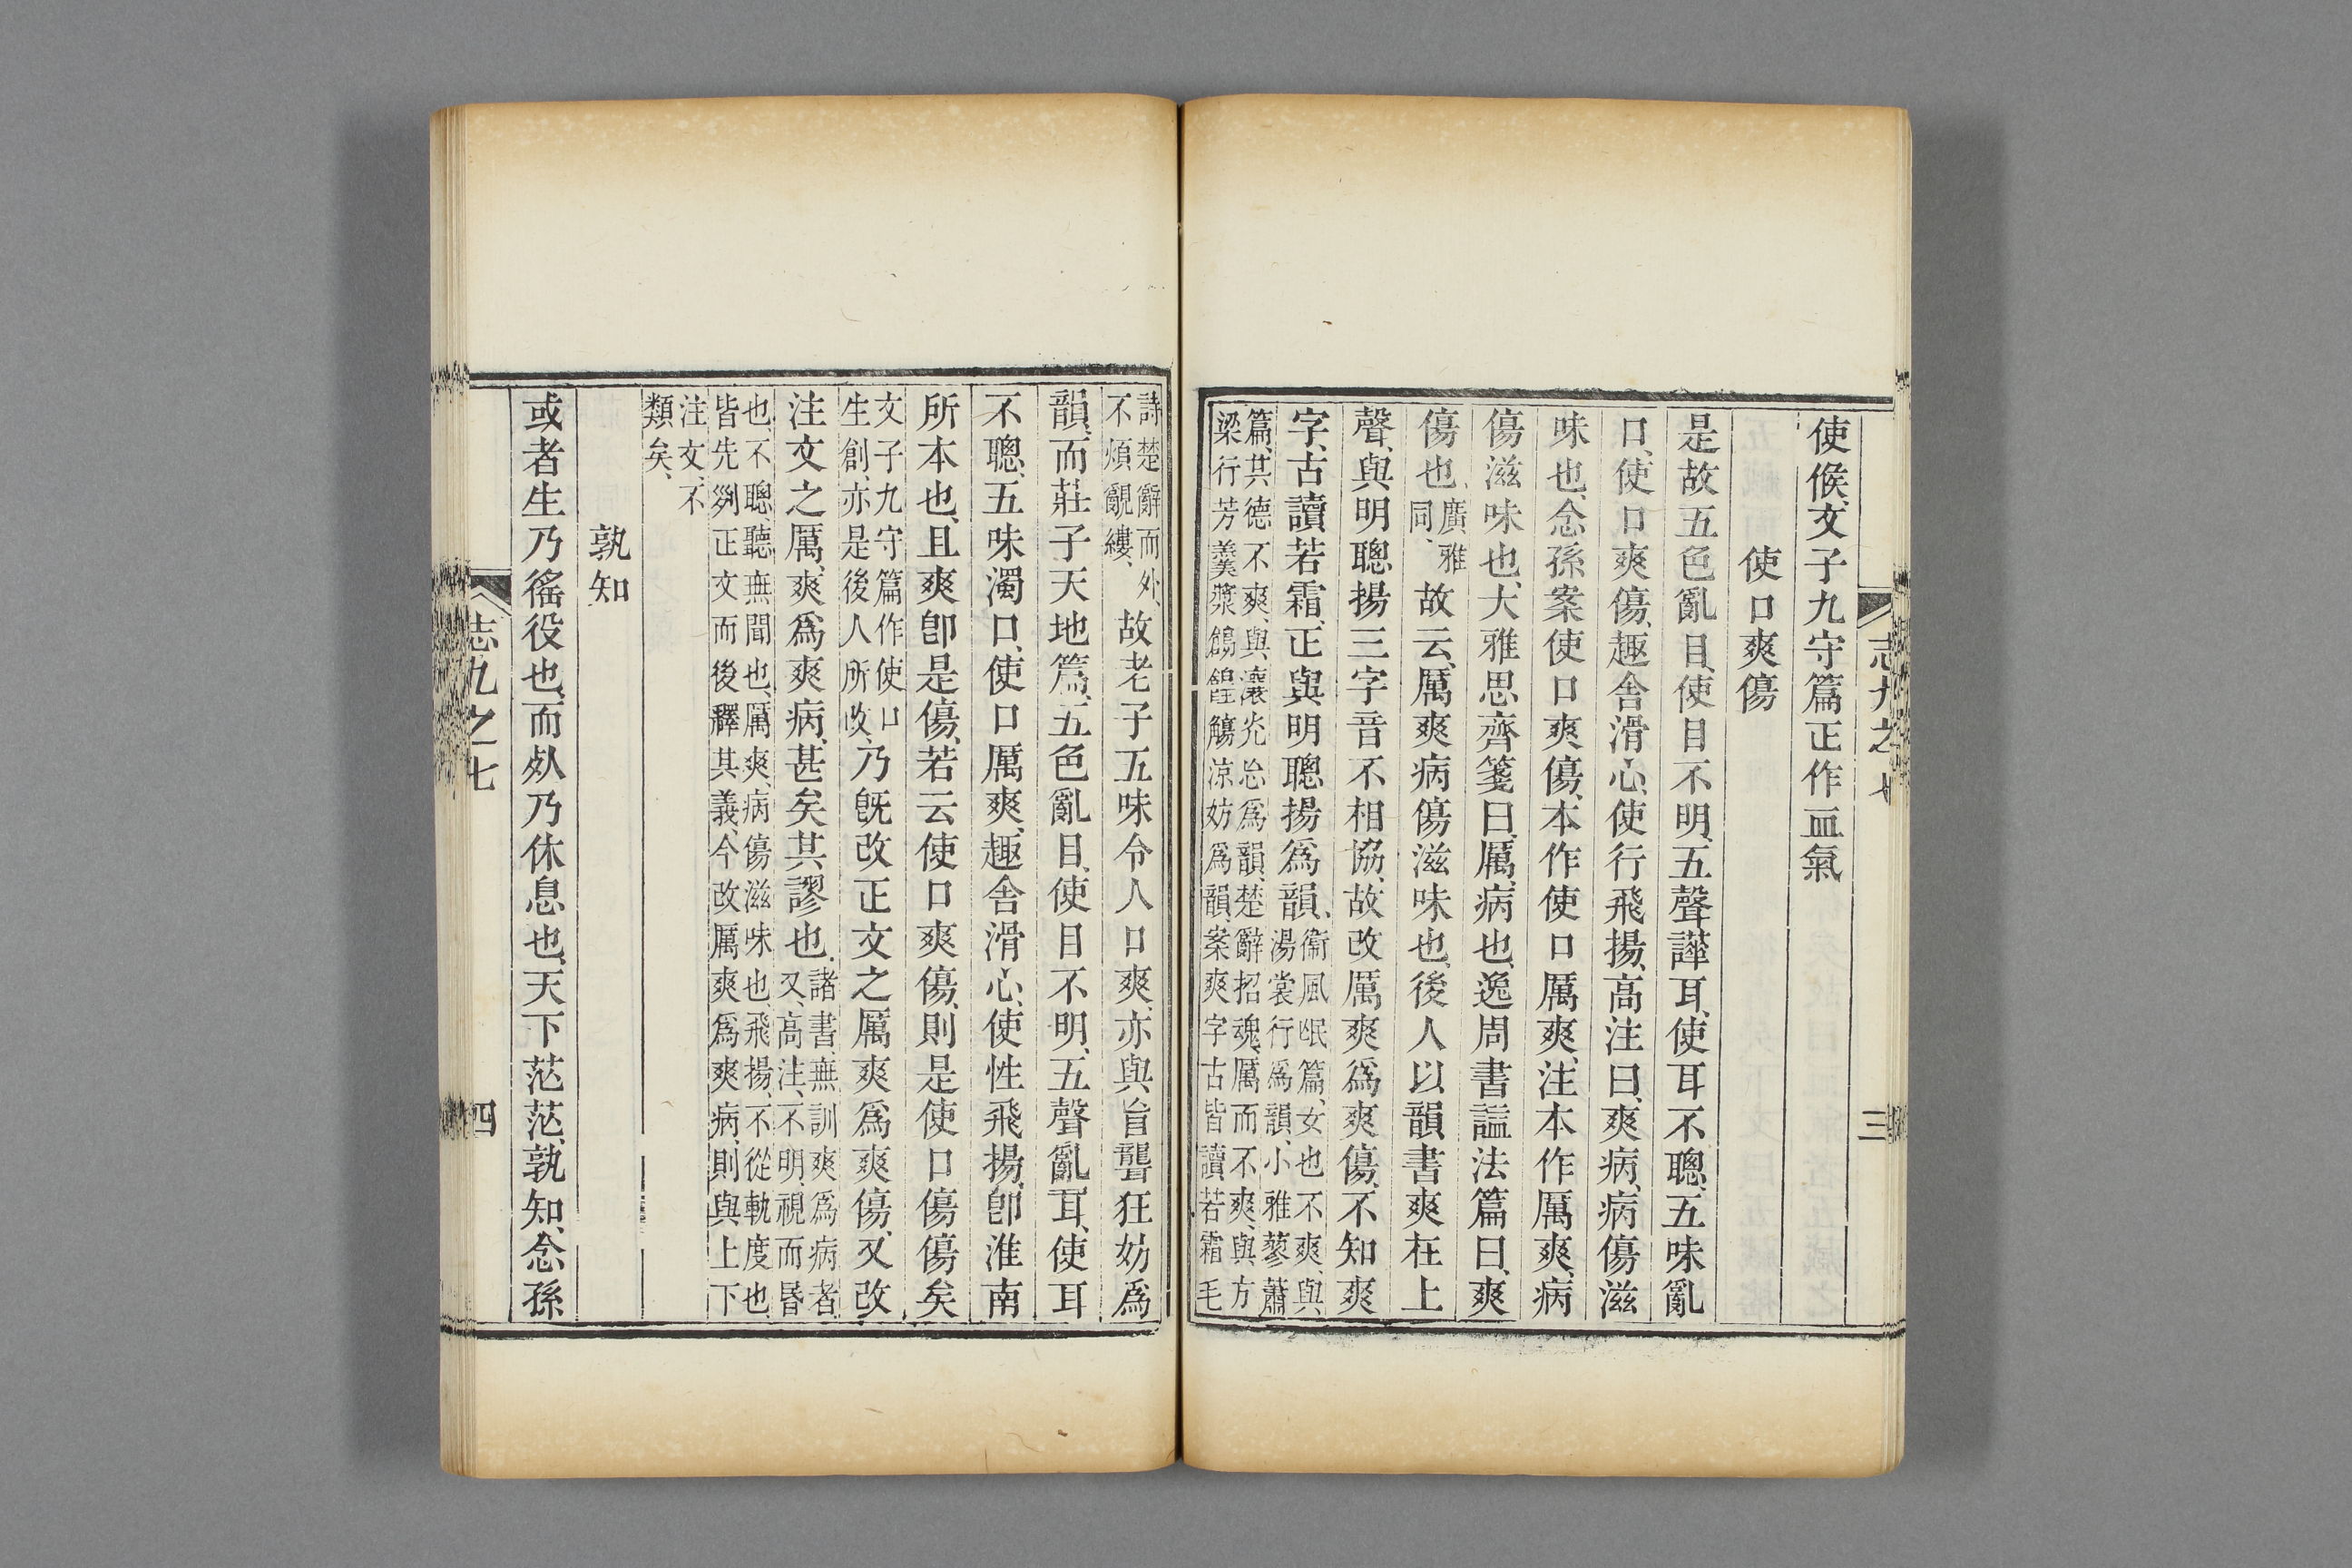 志九之七
三
使候、文子九守篇正作血氣
使口爽傷
是故五色亂目、使目不明、五聲譁耳、使耳不聰、五味亂
口、使口爽傷、趣舍滑心、使行飛揚、高注曰、爽病、病傷滋
味也、念孫案使口爽傷、本作使口厲爽、注本作厲爽、病
傷滋味也、大雅思齊箋曰、厲、病也、逸周書謚法篇曰、爽
傷也、廣雅同、故云、厲爽病傷滋味也、後人以韻書爽在上
聲、與明聰揚三字音不相協、故改厲爽爲爽傷、不知爽
字、古讀若霜、正與明聰揚爲韻、衞風氓篇、女也不爽、與湯裳行爲韻、小雅蓼蕭
篇、其德不爽、與瀼光忘爲韻、楚辭招魂、厲而不爽、與方梁行芳羹漿鶬餭觴涼妨爲韻、案爽字古皆讀若霜、毛
詩楚辭而外、不煩覼縷、故老子五味令人口爽、亦與盲聾狂妨爲
韻、而莊子天地篇、五色亂目、使目不明、五聲亂耳、使耳
不聰、五味濁口、使口厲爽、趣舍滑心、使性飛揚、卽淮南
所本也、且爽卽是傷、若云使口爽傷、則是使口傷傷矣
文子九守篇作使口生創、亦是後人所改、乃旣改正文之厲爽爲爽傷、又改
注文之厲爽爲爽病、甚矣其謬也、諸書無訓爽爲病者又、高注、不明、視而昏
也、不聰、聽無聞也、厲爽、病傷滋味也、飛揚、不從軌度也、皆先列正文而後釋其義、今改厲爽爲爽病、則與上下
注文、不類矣、
孰知
或者生乃徭役也、而死乃休息也、天下茫茫、孰知、念孫
志九之七
四